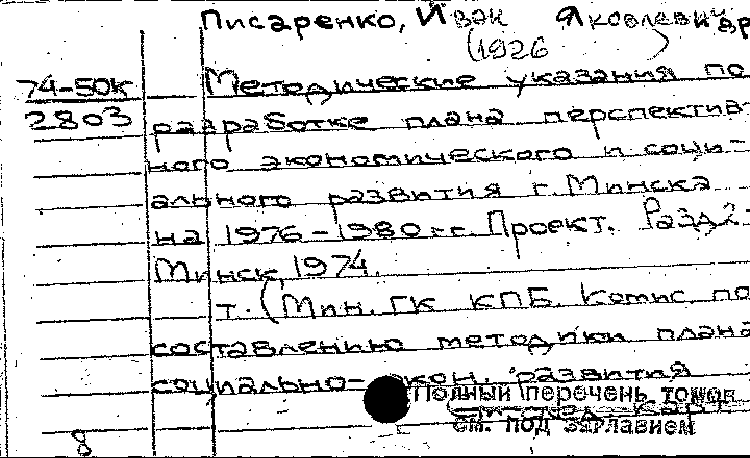 Писаренко, Иван Яковлевич др
(1926 )
74-50к Методические указания по
2803 разработке плана перспектив-
ного экономического и соци-
ального развития г. Минска
на 1976-1980 гг. Проект. Разд 2-
Минск, 1974.
т. (Мин. ГК КПБ. Комис по
составлению методики плана
социально-экон. развития
Полный перечень томов
см. под заглавием
8